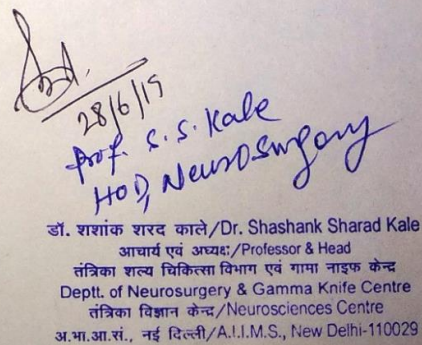 28/6/19
Prof. S. S. Kale
HOD, Neurosurgery
डॉ. शशांक शरद काले/Dr. Shashank Sharad Kale
आचार्य एवं अध्यक्ष:/Professor & Head
तंत्रिका शल्य चिकित्सा विभाग एवं गामा नाइफ केन्द्र
Deptt. of Neurosurgery & Gamma Knife Centre
तंत्रिका विज्ञान केन्द्र/Neurosciences Centre
अ.भा.आ.सं., नई दिल्ली/A.I.I.M.S., New Delhi-110029